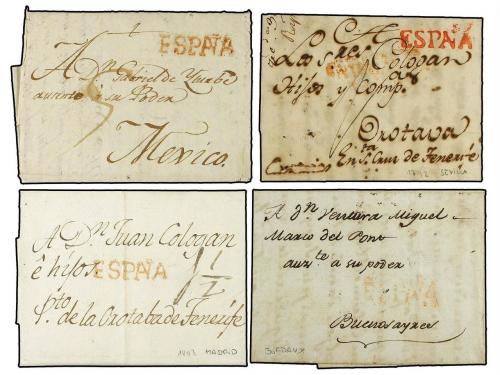 ESPAÑA
A Dn. Gabriel de Yturbe
ausente a su Poder
Mexico.
ESPAÑA
Los Sres Cologan
Hijos y Comp.
Orotava
En Sta. Cruz de Tenerife
1792 SEVILLA
A Dn. Juan Cologan
é hijos
ESPAÑA
Pto. de la Orotaba de Tenerife
1793 MADRID
A Dn. Ventura Miguel
Marco del Pont
auzte a su poder
ESPAÑA
Buenos ayres